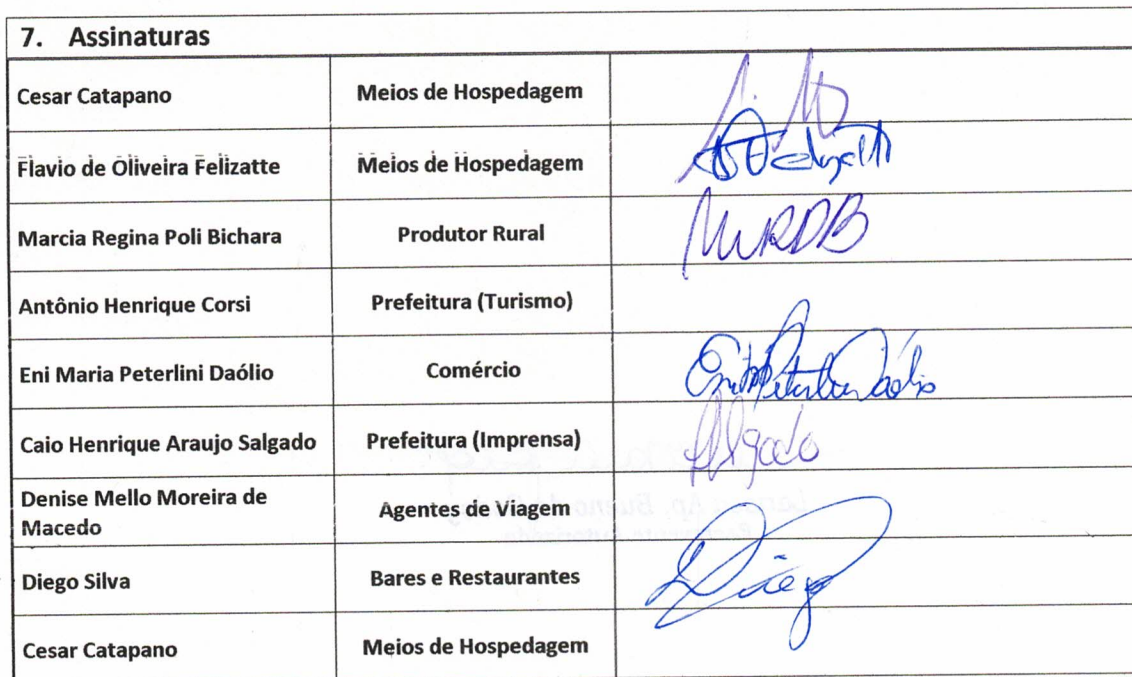 7. Assinaturas
Cesar Catapano Meios de Hospedagem
Flavio de Oliveira Felizatte Meios de Hospedagem
Marcia Regina Poli Bichara Produtor Rural
MRPB
Antônio Henrique Corsi Prefeitura (Turismo)
Eni Maria Peterlini Daólio Comércio
Caio Henrique Araujo Salgado Prefeitura (Imprensa) Salgado
Denise Mello Moreira de
Macedo Agentes de Viagem
Diego Silva Bares e Restaurantes Diego
Cesar Catapano Meios de Hospedagem